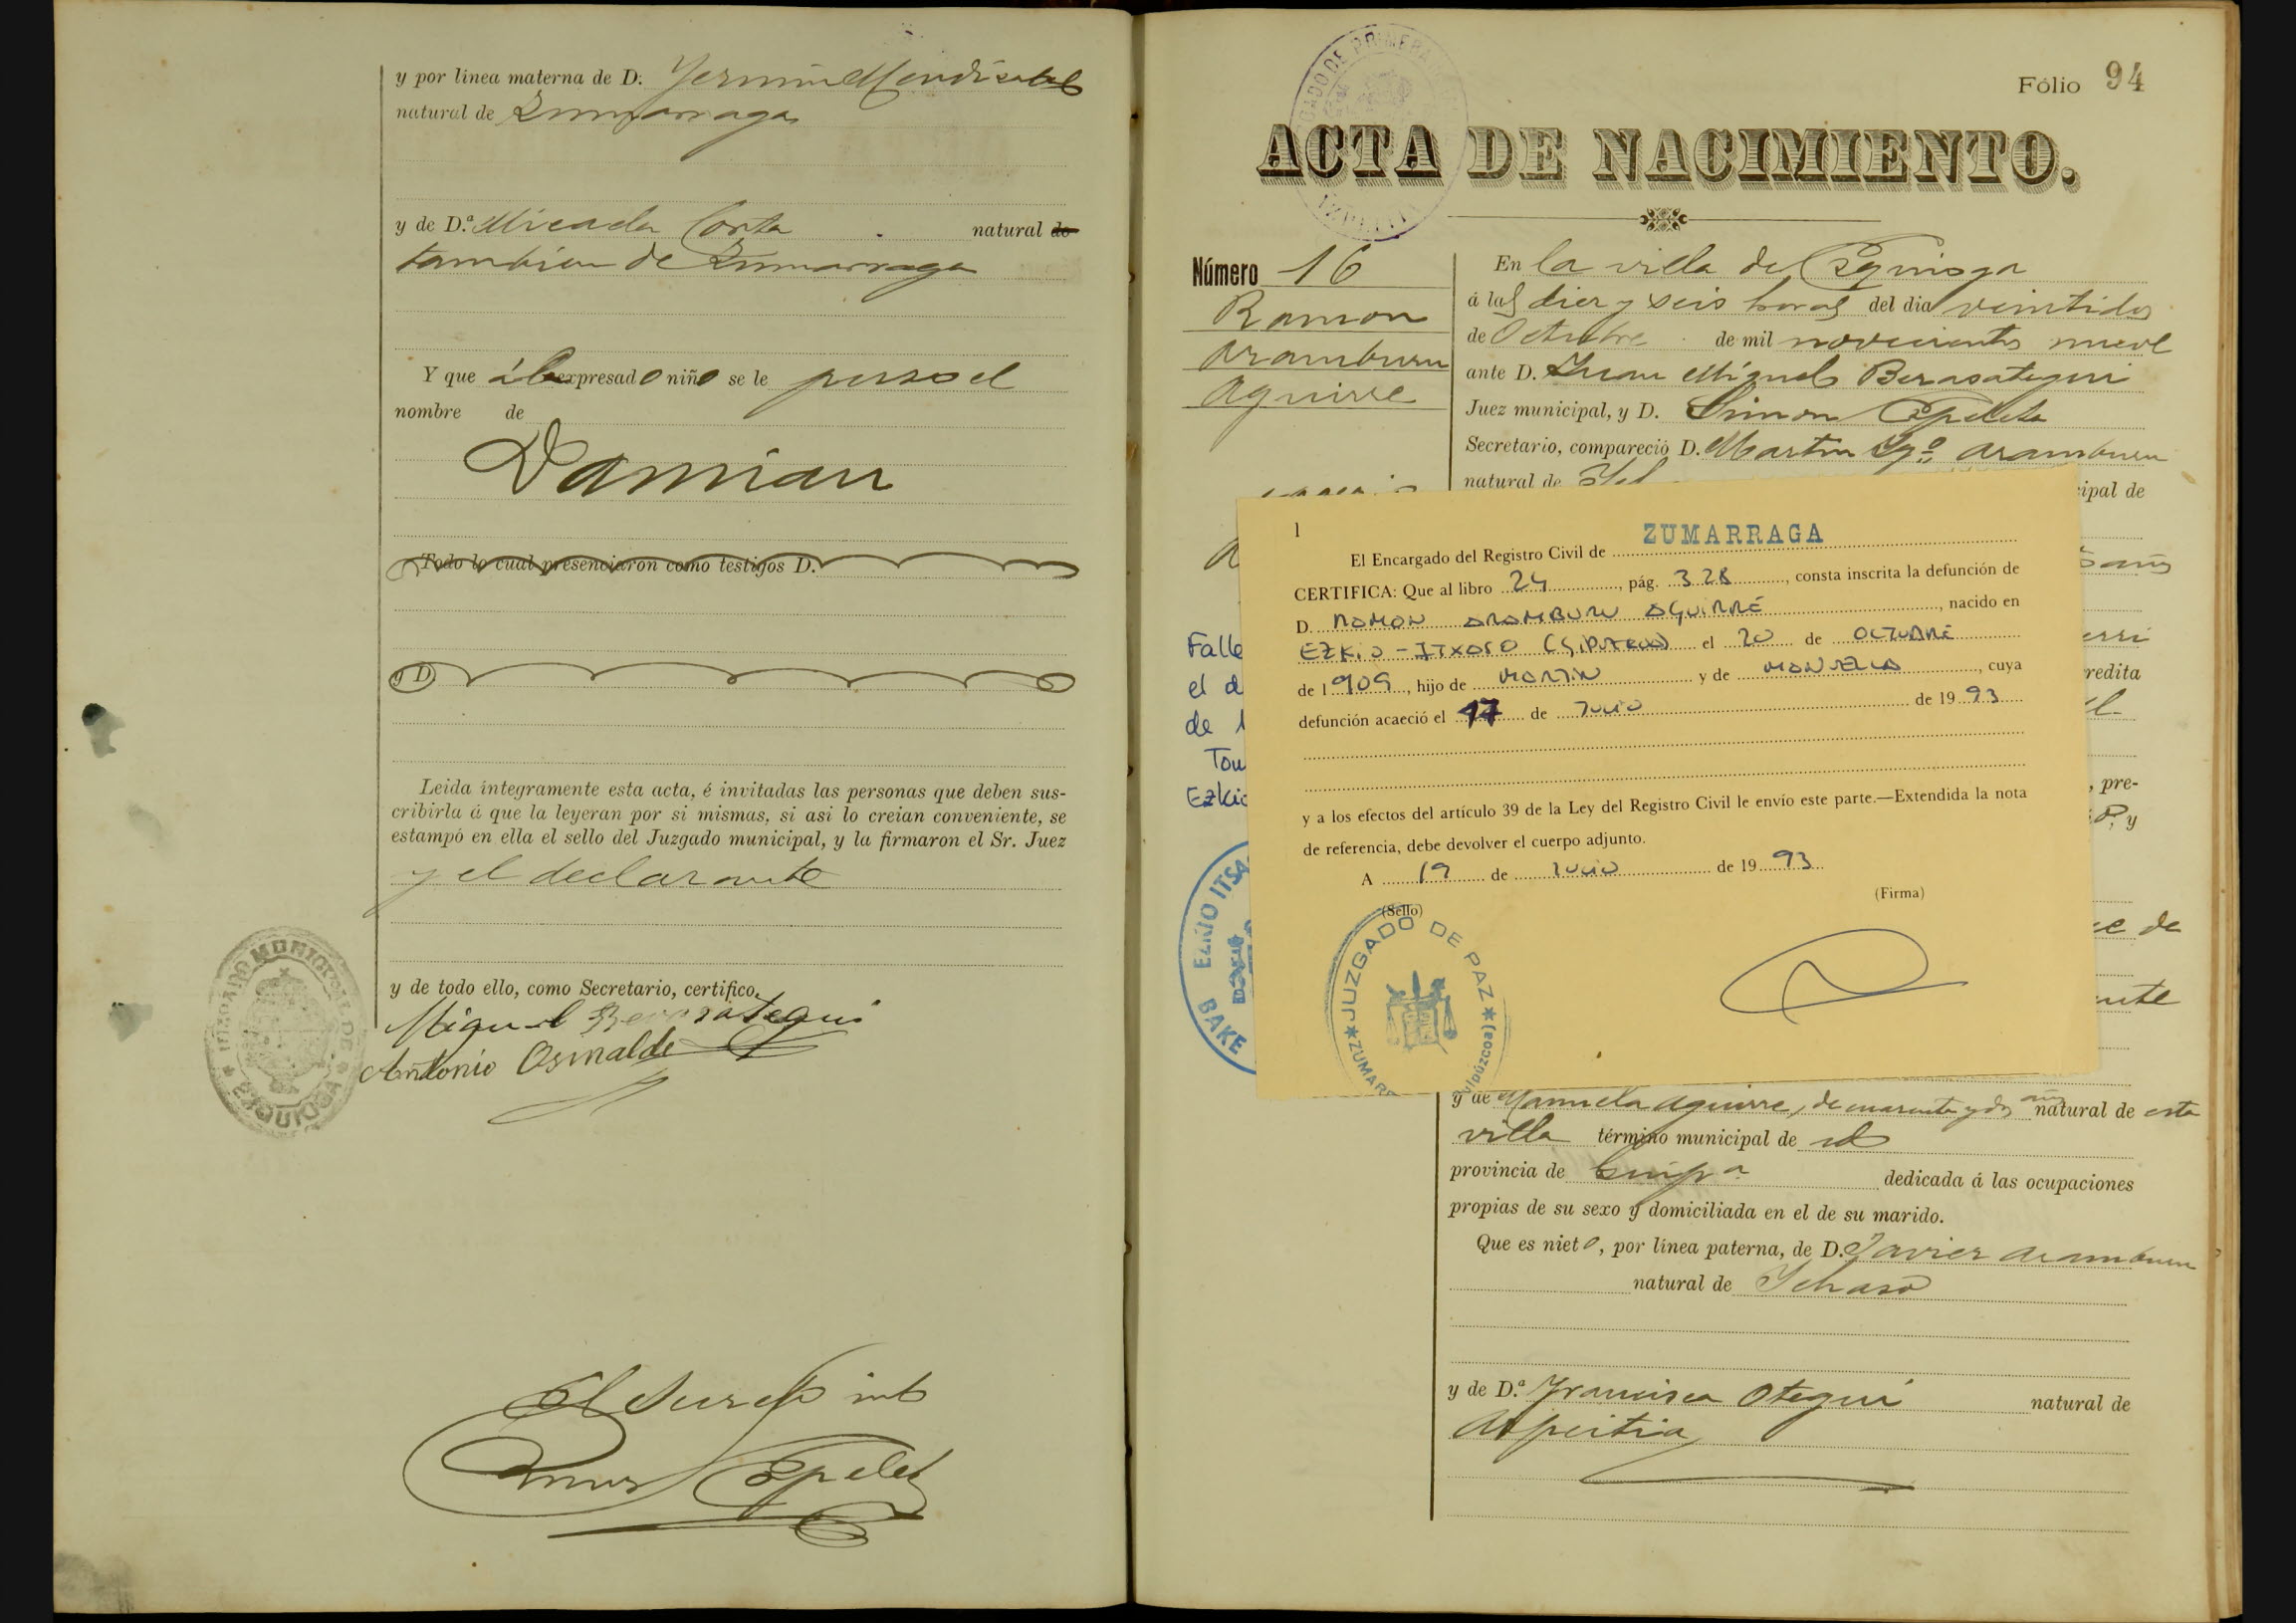 y por línea materna de D. Fermin Mendizabal
natural de Zumarraga
y de D.ª Micaela Corta natural de
tambien de Zumarraga
Y que al expresado niño se le puso el
nombre de
Damian
Todo lo cual presenciaron como testigos D.
y D.
Leida íntegramente esta acta, é invitadas las personas que deben sus-
cribirla á que la leyeran por si mismas, si asi lo creían conveniente, se
estampó en ella el sello del Juzgado municipal, y la firmaron el Sr. Juez
y el declarante
y de todo ello, como Secretario, certifico.
Miguel Berasategui
Antonio Osinalde
JUZGADO MUNICIPAL DE
EZQUIOGA
Epelde
Fólio 94
JUZGADO DE PRIMERA
AZPEITIA
ACTA DE NACIMIENTO.
Número 16
Ramon
Aramburu
Aguirre
En la villa de Ezquioga
á las diez y seis horas del dia veintidos
de Octubre de mil novecientos nueve
ante D. Juan Miguel Berasategui
Juez municipal, y D. Simon Epelde
Secretario, compareció D. Martin Ygº Aramburu
natural de
cipal de
años
erri
redita
, pre-
y
ce de
Falle
el d
de 1
Tou
Ezkio
EZKIO ITSA
BAKE
1
El Encargado del Registro Civil de ZUMARRAGA
CERTIFICA: Que al libro 24, pág. 328, consta inscrita la defunción de
D. RAMON ARAMBURU AGUIRRE, nacido en
EZKIO-ITXASO (GIPUZKOA) el 20 de OCTUBRE
de 1909, hijo de MARTIN y de MANUELA, cuya
defunción acaeció el 17 de JULIO de 1993
y a los efectos del artículo 39 de la Ley del Registro Civil le envío este parte.—Extendida la nota
de referencia, debe devolver el cuerpo adjunto.
A 19 de JULIO de 1993
(Firma)
(Sello)
JUZGADO DE PAZ
*ZUMARR
uipúzcoa)*
y de Manuela Aguirre, de cuarenta y dos años natural de esta
villa término municipal de id
provincia de Guipª dedicada á las ocupaciones
propias de su sexo y domiciliada en el de su marido.
Que es nieto, por línea paterna, de D. Javier Aramburu
natural de Ichaso
y de D.ª Francisca Otegui natural de
Azpeitia